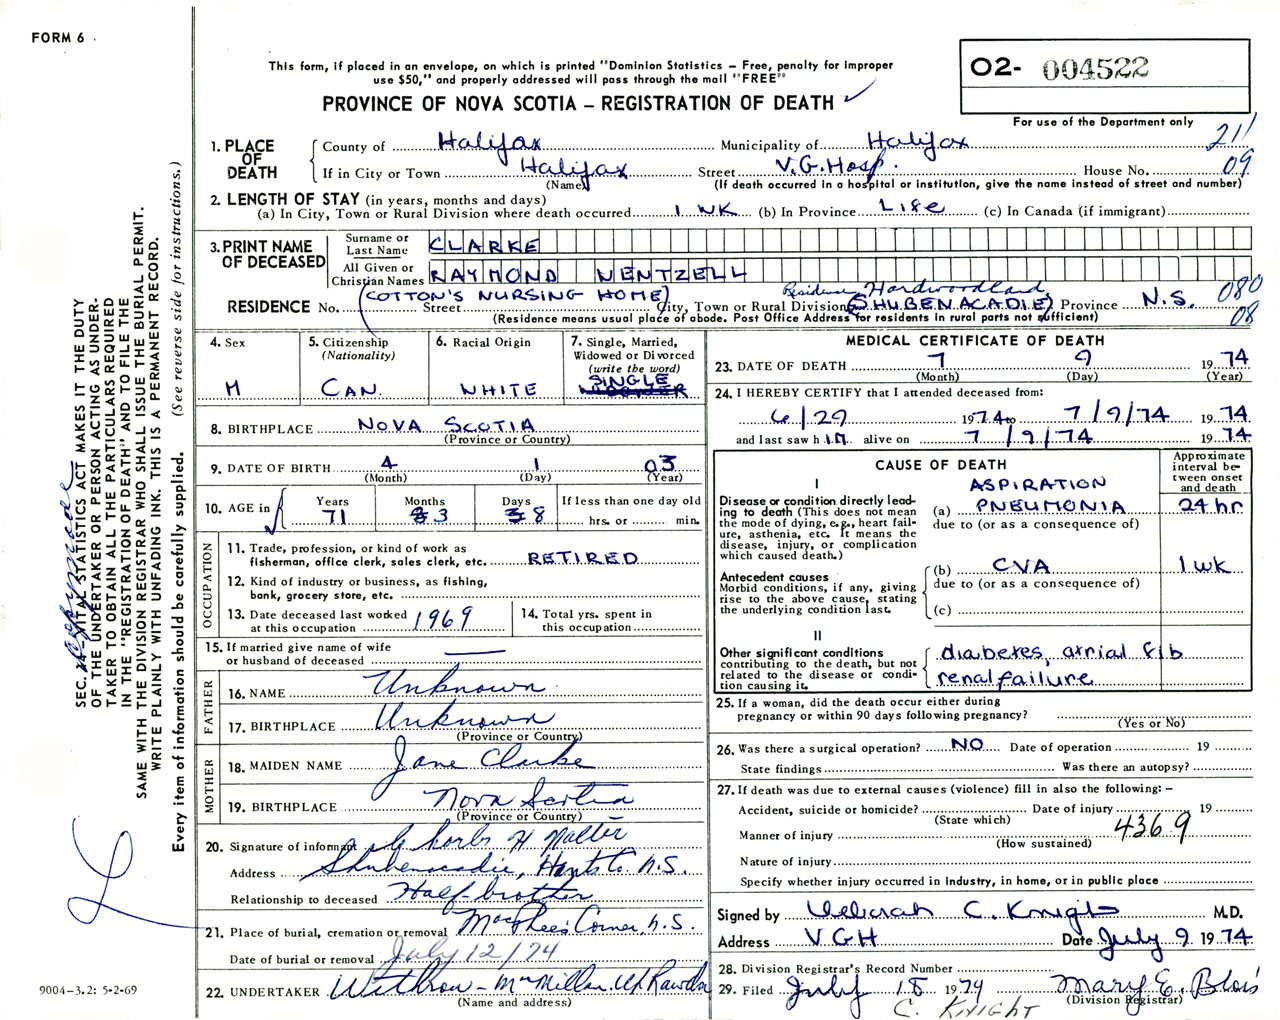 FORM 6
This form, if placed in an envelope, on which is printed "Dominion Statistics – Free, penalty for improper
use $50," and properly addressed will pass through the mail "FREE"
PROVINCE OF NOVA SCOTIA – REGISTRATION OF DEATH ✓
02- 004522
For use of the Department only
211
09
1. PLACE OF DEATH
County of Halifax Municipality of Halifax
If in City or Town Halifax Street V.G. Hosp. House No.
(Name) (If death occurred in a hospital or institution, give the name instead of street and number)
2. LENGTH OF STAY (in years, months and days)
(a) In City, Town or Rural Division where death occurred 1 WK (b) In Province Life (c) In Canada (if immigrant)
3. PRINT NAME OF DECEASED
Surname or Last Name CLARKE
All Given or Christian Names RAYMOND WENTZELL
Residence Hardwoodland
RESIDENCE No. (COTTON'S NURSING HOME) Street City, Town or Rural Division (SHUBENACADIE) Province N.S. 080
08
(Residence means usual place of abode. Post Office Address for residents in rural parts not sufficient)
4. Sex
M
5. Citizenship
(Nationality)
CAN.
6. Racial Origin
WHITE
7. Single, Married,
Widowed or Divorced
(write the word)
SINGLE
8. BIRTHPLACE NOVA SCOTIA
(Province or Country)
9. DATE OF BIRTH 4 1 03
(Month) (Day) (Year)
10. AGE in Years Months Days If less than one day old
71 3 8 hrs. or min.
OCCUPATION
11. Trade, profession, or kind of work as
fisherman, office clerk, sales clerk, etc. RETIRED
12. Kind of industry or business, as fishing,
bank, grocery store, etc.
13. Date deceased last worked
at this occupation 1969
14. Total yrs. spent in
this occupation
15. If married give name of wife
or husband of deceased —
FATHER
16. NAME Unknown
17. BIRTHPLACE Unknown
(Province or Country)
MOTHER
18. MAIDEN NAME Jane Clarke
19. BIRTHPLACE Nova Scotia
(Province or Country)
20. Signature of informant H
Address Shubenacadie, Hants Co. N.S.
Relationship to deceased Half-brother
21. Place of burial, cremation or removal MacPhee's Corner, N.S.
Date of burial or removal July 12/74
22. UNDERTAKER Withrow - McMillan, Rawdon
(Name and address)
MEDICAL CERTIFICATE OF DEATH
23. DATE OF DEATH 7 9 1974
(Month) (Day) (Year)
24. I HEREBY CERTIFY that I attended deceased from:
6/29 1974 to 7/9/74 1974
and last saw him alive on 7/9/74 1974
CAUSE OF DEATH
Approximate interval between onset and death
I
Disease or condition directly lead-
ing to death (This does not mean
the mode of dying, e.g., heart fail-
ure, asthenia, etc. It means the
disease, injury, or complication
which caused death.)
ASPIRATION
(a) PNEUMONIA 24 hr
due to (or as a consequence of)
Antecedent causes
Morbid conditions, if any, giving
rise to the above cause, stating
the underlying condition last.
(b) CVA 1 wk
due to (or as a consequence of)
(c)
II
Other significant conditions
contributing to the death, but not
related to the disease or condi-
tion causing it.
diabetes, atrial fib
renal failure
25. If a woman, did the death occur either during
pregnancy or within 90 days following pregnancy?
(Yes or No)
26. Was there a surgical operation? NO Date of operation 19
State findings Was there an autopsy?
27. If death was due to external causes (violence) fill in also the following: –
Accident, suicide or homicide? Date of injury 19
(State which)
4369
Manner of injury
(How sustained)
Nature of injury
Specify whether injury occurred in industry, in home, or in public place
Signed by Deborah C. Knight M.D.
Address VGH Date July 9 1974
28. Division Registrar's Record Number
29. Filed July 18 1974 Mary E. Blois
(Division Registrar)
C. KNIGHT
SEC. 14 – VITAL STATISTICS ACT MAKES IT THE DUTY
OF THE UNDERTAKER OR PERSON ACTING AS UNDER-
TAKER TO OBTAIN ALL THE PARTICULARS REQUIRED
IN THE "REGISTRATION OF DEATH" AND TO FILE THE
SAME WITH THE DIVISION REGISTRAR WHO SHALL ISSUE THE BURIAL PERMIT.
WRITE PLAINLY WITH UNFADING INK. THIS IS A PERMANENT RECORD.
Every item of information should be carefully supplied. (See reverse side for instructions.)
9004–3.2: 5-2-69